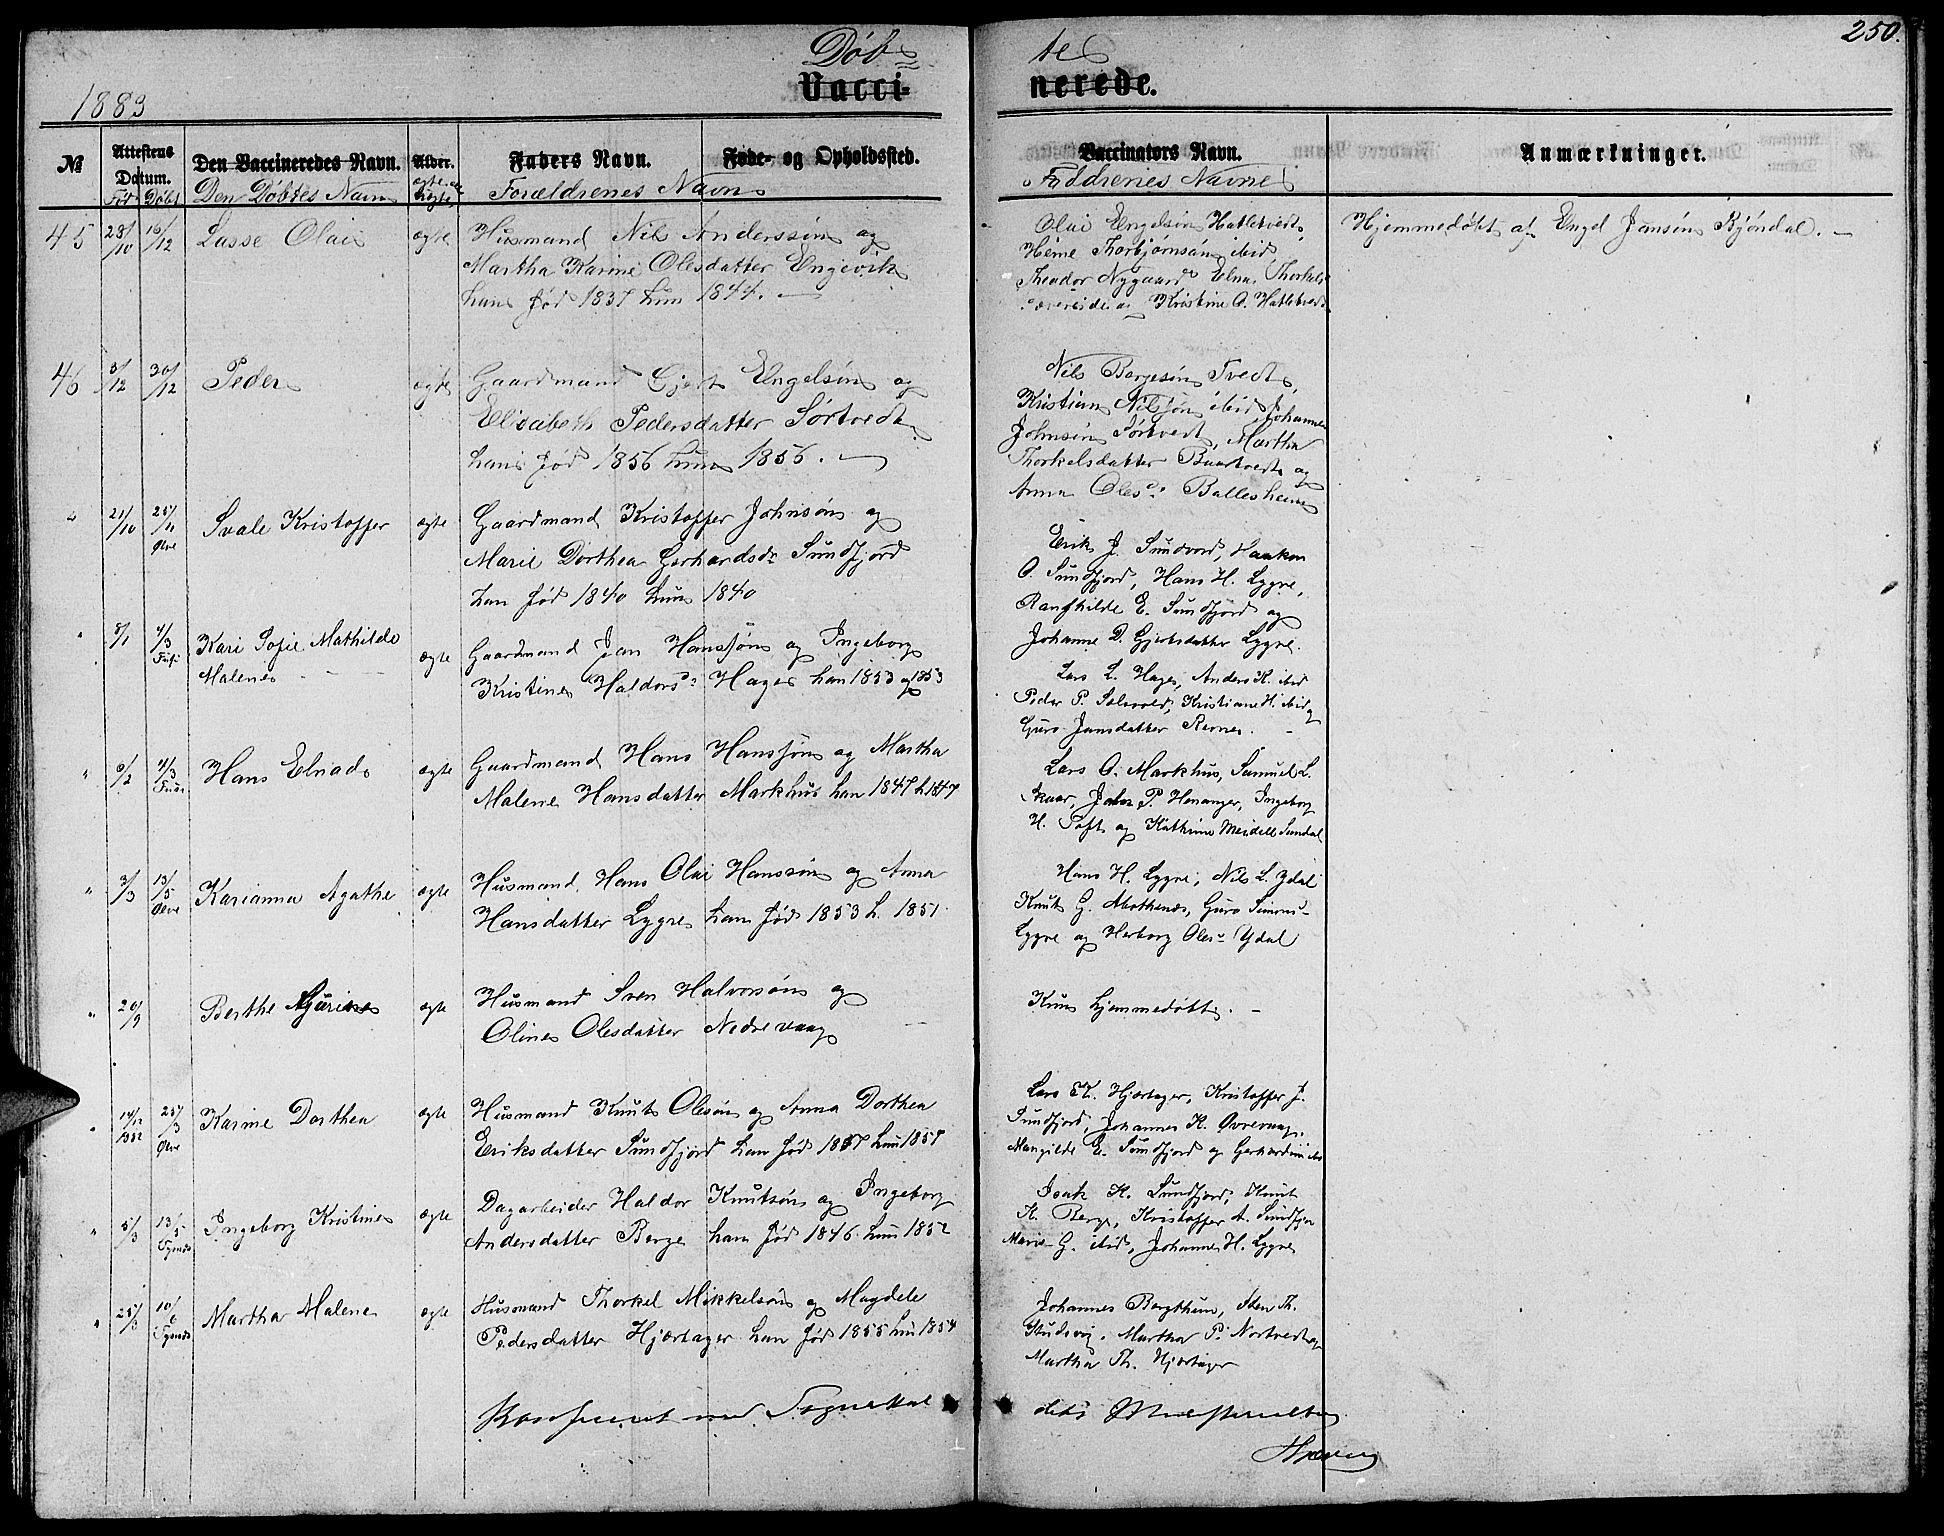 250.
Døb= te
1883
Vacci- nerede.
№ Attestens Datum. Den Vaccineredes Navn. Alder. Faders Navn. Føde- og Opholdssted. Vaccinators Navn. Anmærkninger.
Fød Døbt Den Døbtes Navn ægte Forældrenes Navn Faddrenes Navne
45 28/10 16/12 Lasse Olai ægte Husmand Nils Anderssøn og
Martha Karine Olesdatter Engevik
han fød 1837 hun 1844. —
Olai Engelsøn Hatletvedt,
Heine Thorbjørnsøn ibid,
Theodor Nygaard Elna Thorkels
og Kristine O. Hatletvedt
Hjemmedøbt af Engel Jansøn Bjøndal. —
46 3/12 30/12 Peder ægte Gaardmand Gjert Engelsøn og
Elisabeth Pedersdatter Sørtvedt
han fød 1856 hun 1856. —
Nils Børgesøn Tvedt,
Kristian Nilssøn ibid, Johannes
Johnsøn Sørtvedt, Martha
Thorkelsdatter Baartvedt og
Anna Olesd. Ballesheim
" 21/10 25/11 Ølve Svale Kristoffer ægte Gaardmand Kristoffer Johnsøn og
Marie Dorthea Gerhardsdr Sundfjord
han fød 1840 hun 1840
Erik J. Sundvord, Haakon
O. Sundfjord, Hans H. Lygre,
Ranghilde E. Sundfjord og
Johanne D. Gjertsdatter Lygre.
" 8/1 4/3 Kari Sofie Mathilde
Malene ægte Gaardmand Jan Hanssøn og Ingeborg
Kristine Haldorsd. Hage han 1853 og 1853
Lars L. Hage, Anders K. ibid
Peder P. Sælevold, Kristiane H. ibid og
Guro Jansdatter Revne. -
" 9/2 4/3 Hans Elnad ægte Gaardmand Hans Hanssøn og Martha
Malene Hansdatter Markhus han 1847 h. 1847
Lars O. Markhus, Samuel L.
Skaar, John P. Henanger, Ingeborg
H. Toft og Kathrine Meidell Sundal
" 3/3 13/5 Ølve Karianna Agathe ægte Husmand Hans Olai Hanssøn og Anna
Hansdatter Lygre han fød 1853 h. 1851.
Hans H. Lygre, Nils L. Ydal
Knut G. Møthenes, Guro Simons-
Lygre og Herborg Oles- Ydal
" 20/9 Berthe ægte Husmand Sven Halvorsøn og
Oline Olesdatter Nedrevaag
Kun hjemmedøbt. -
" 14/12 1882 25/3 Ølve Karine Dorthea ægte Husmand Knut Olesøn og Anna Dorthea
Eriksdatter Sundfjord han fød 1857 hun 1857
Lars K. Hjortager, Kristoffer J.
Sundfjord, Johannes K. Øvrevaag,
E. Sundfjord og Gerhardine ibid
" 5/3 13/5 Ingeborg Kristine ægte Dagarbeider Haldor Knutsøn og Ingeborg
Andersdatter Berge han fød 1846 hun 1852
Isak K. Sundfjord, Knut
K. Berge, Kristoffer A. Sundfjor
Marie G. ibid, Johanne H. Lygre
" 25/3 10/6 Martha Malene ægte Husmand Thorkel Mikkelsøn og Magdele
Pedersdatter Hjortager han fød 1855 hun 1854
Johannes Bergthun, Iden Th.
Studsvig, Martha P. Nortvedt og
Martha Th. Hjortager